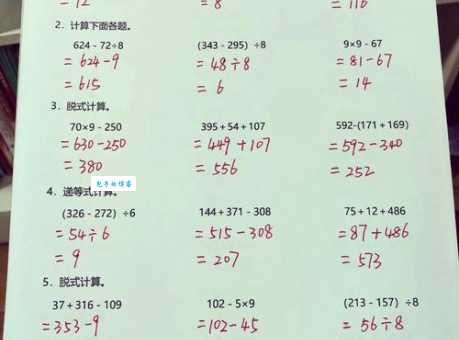 = 12 = 8 = 110
2. 计算下面各题。
624 - 72÷8 (343 - 295) ÷8 9×9 - 67
= 624 - 9 = 48÷8 = 81-67
= 615 = 6 = 14
3. 脱式计算。
70×9 - 250 395 + 54 + 107 592-(171 + 169)
= 630-250 = 449 + 107 = 592 - 340
= 380 = 556 = 252
4. 递等式计算。
(326 - 272) ÷6 144 + 371 - 308 75 + 12 + 486
= 54÷6 = 515 - 308 = 87 + 486
= 9 = 207 = 573
5. 脱式计算。
37 + 316 - 109 102 - 5×9 (213 - 157) ÷8
= 353 - 9 = 102 - 45 = 56÷8